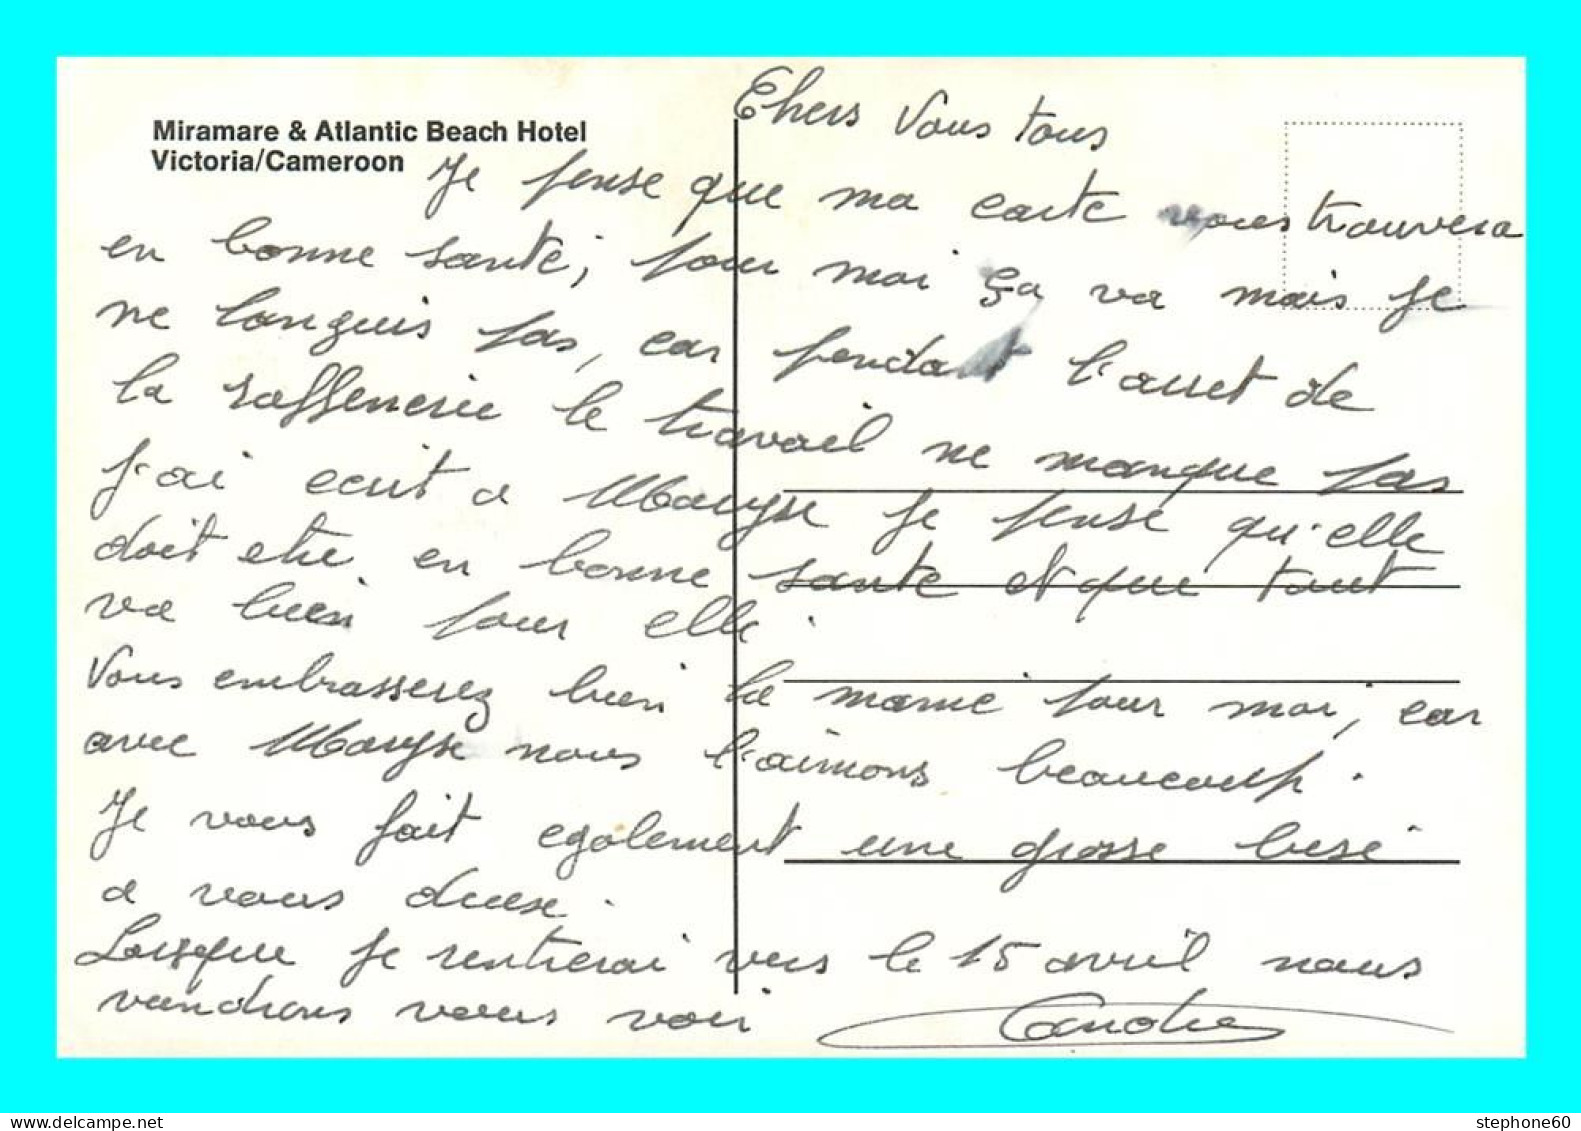 Miramare & Atlantic Beach Hotel
Victoria/Cameroon
Chers Vous tous
Je pense que ma carte vous trouvera
en bonne santé, pour moi ça va mais je
ne languis pas, car pendant l'arret de
la raffenerie le travail ne manque pas
j'ai ecrit a Maryse je pense qu'elle
doit etre en bonne sante et que tout
va bien pour elle.
Vous embrasserez bien la mamé pour moi, car
avec Maryse nous l'aimons beaucoup.
Je vous fait egalement une grosse bise
a vous deux.
Lorsque je rentrerai vers le 15 avril nous
vandrons vous voir
stephone60